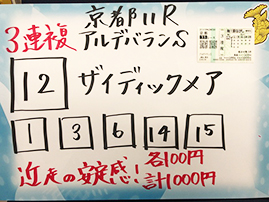 京都11R
3連複 アルデバランS
12 ザイディックメア
1 3 6 14 15
近走の安定感! 各100円
計1000円